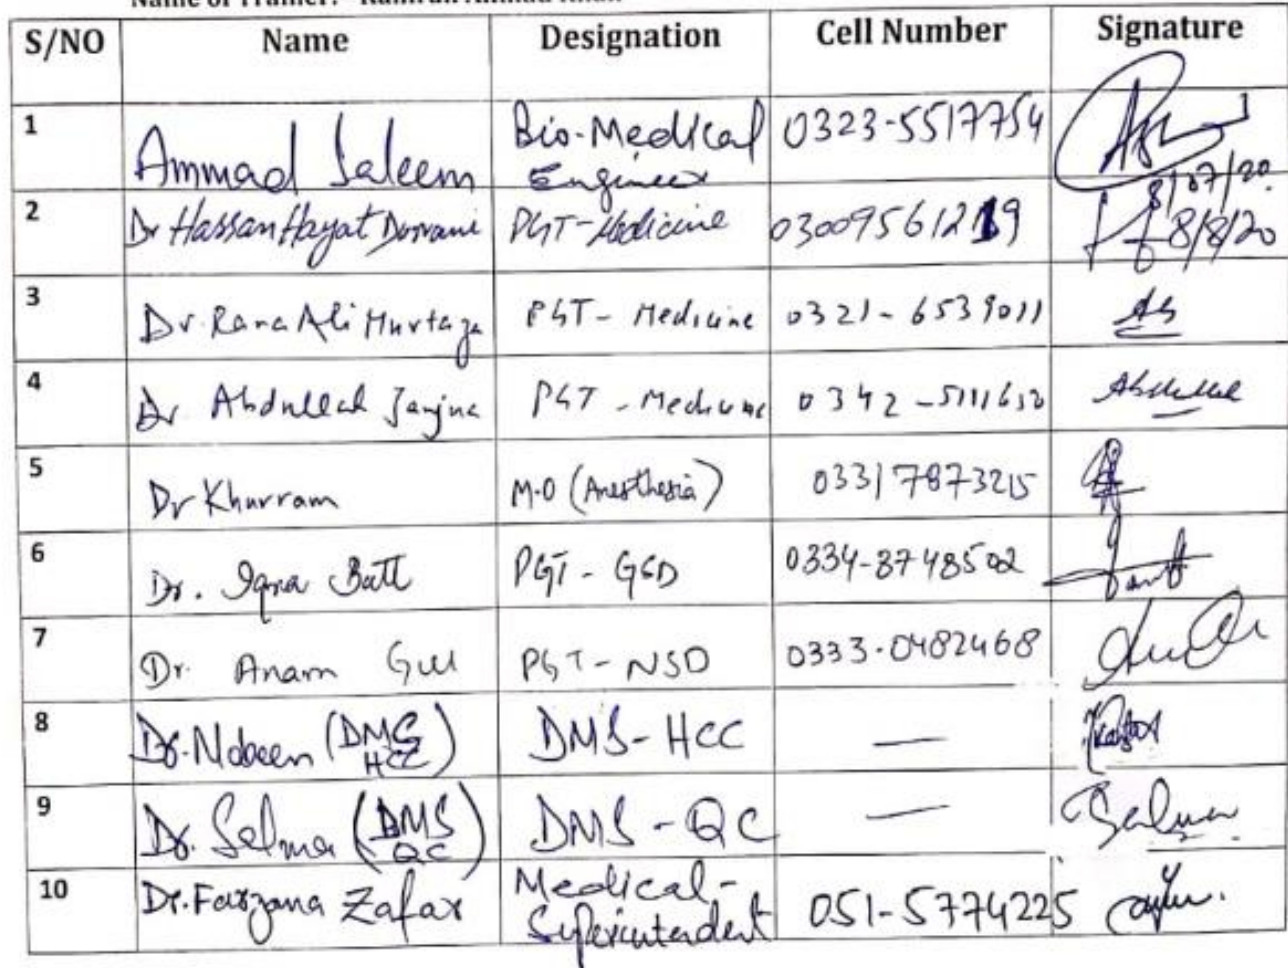 Name of Trainer: Kamran Ahmad Khan
S/NO Name Designation Cell Number Signature
1 Ammad Saleem Bio-Medical Engineer 0323-5517754
8/07/20
2 Dr Hassan Hayat Durrani PGT-Medicine 03009561219 8/8/20
3 Dr. Rana Ali Murtaza PGT-Medicine 0321-6539011
4 Dr Abdullah Janjua PGT-Medicine 0342-5111650 Abdullah
5 Dr Khurram M.O (Anesthesia) 03317873215
6 Dr. Iqra Batt PGT-GSD 0334-8748502
7 Dr. Anam Gul PGT-NSD 0333-0482468
8 Dr. Nobeen (DMS HCC) DMS-HCC —
9 Dr. Selma (DMS QC) DMS-QC — Salma
10 Dr. Farzana Zafar Medical-Superintendent 051-5774225